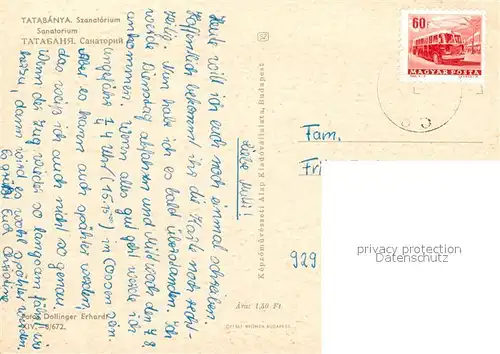 TATABÁNYA. Szanatórium
Sanatorium
ТАТАБАНЯ. Санаторий
60
MAGYAR POSTA
Liebe Mutti!
Heute will ich euch noch einmal schreiben.
Hoffentlich bekommt ihr die Karte noch recht-
zeitig. Nun habe ich es bald überstanden. Ich
werde Dienstag abfahren und Mittwoch den 4.8.
ankommen. Wenn alles gut geht werde ich
ungefähr 14 Uhr (15.15 Uhr) in sein.
Aber es kann auch später werden,
das weiß ich auch nicht so genau.
Wenn der Zug wieder so langsam fährt wie
hierzu, dann wird es wohl später werden.
Es grüßt Euch Christine
Fam.
929
Képzőművészeti Alap Kiadóvállalata, Budapest
Ára: 1,50 Ft
OFFSET NYOMDA BUDAPEST
Fotos Dollinger Erhardt
XIV.—8/672.
privacy protection
Datenschutz